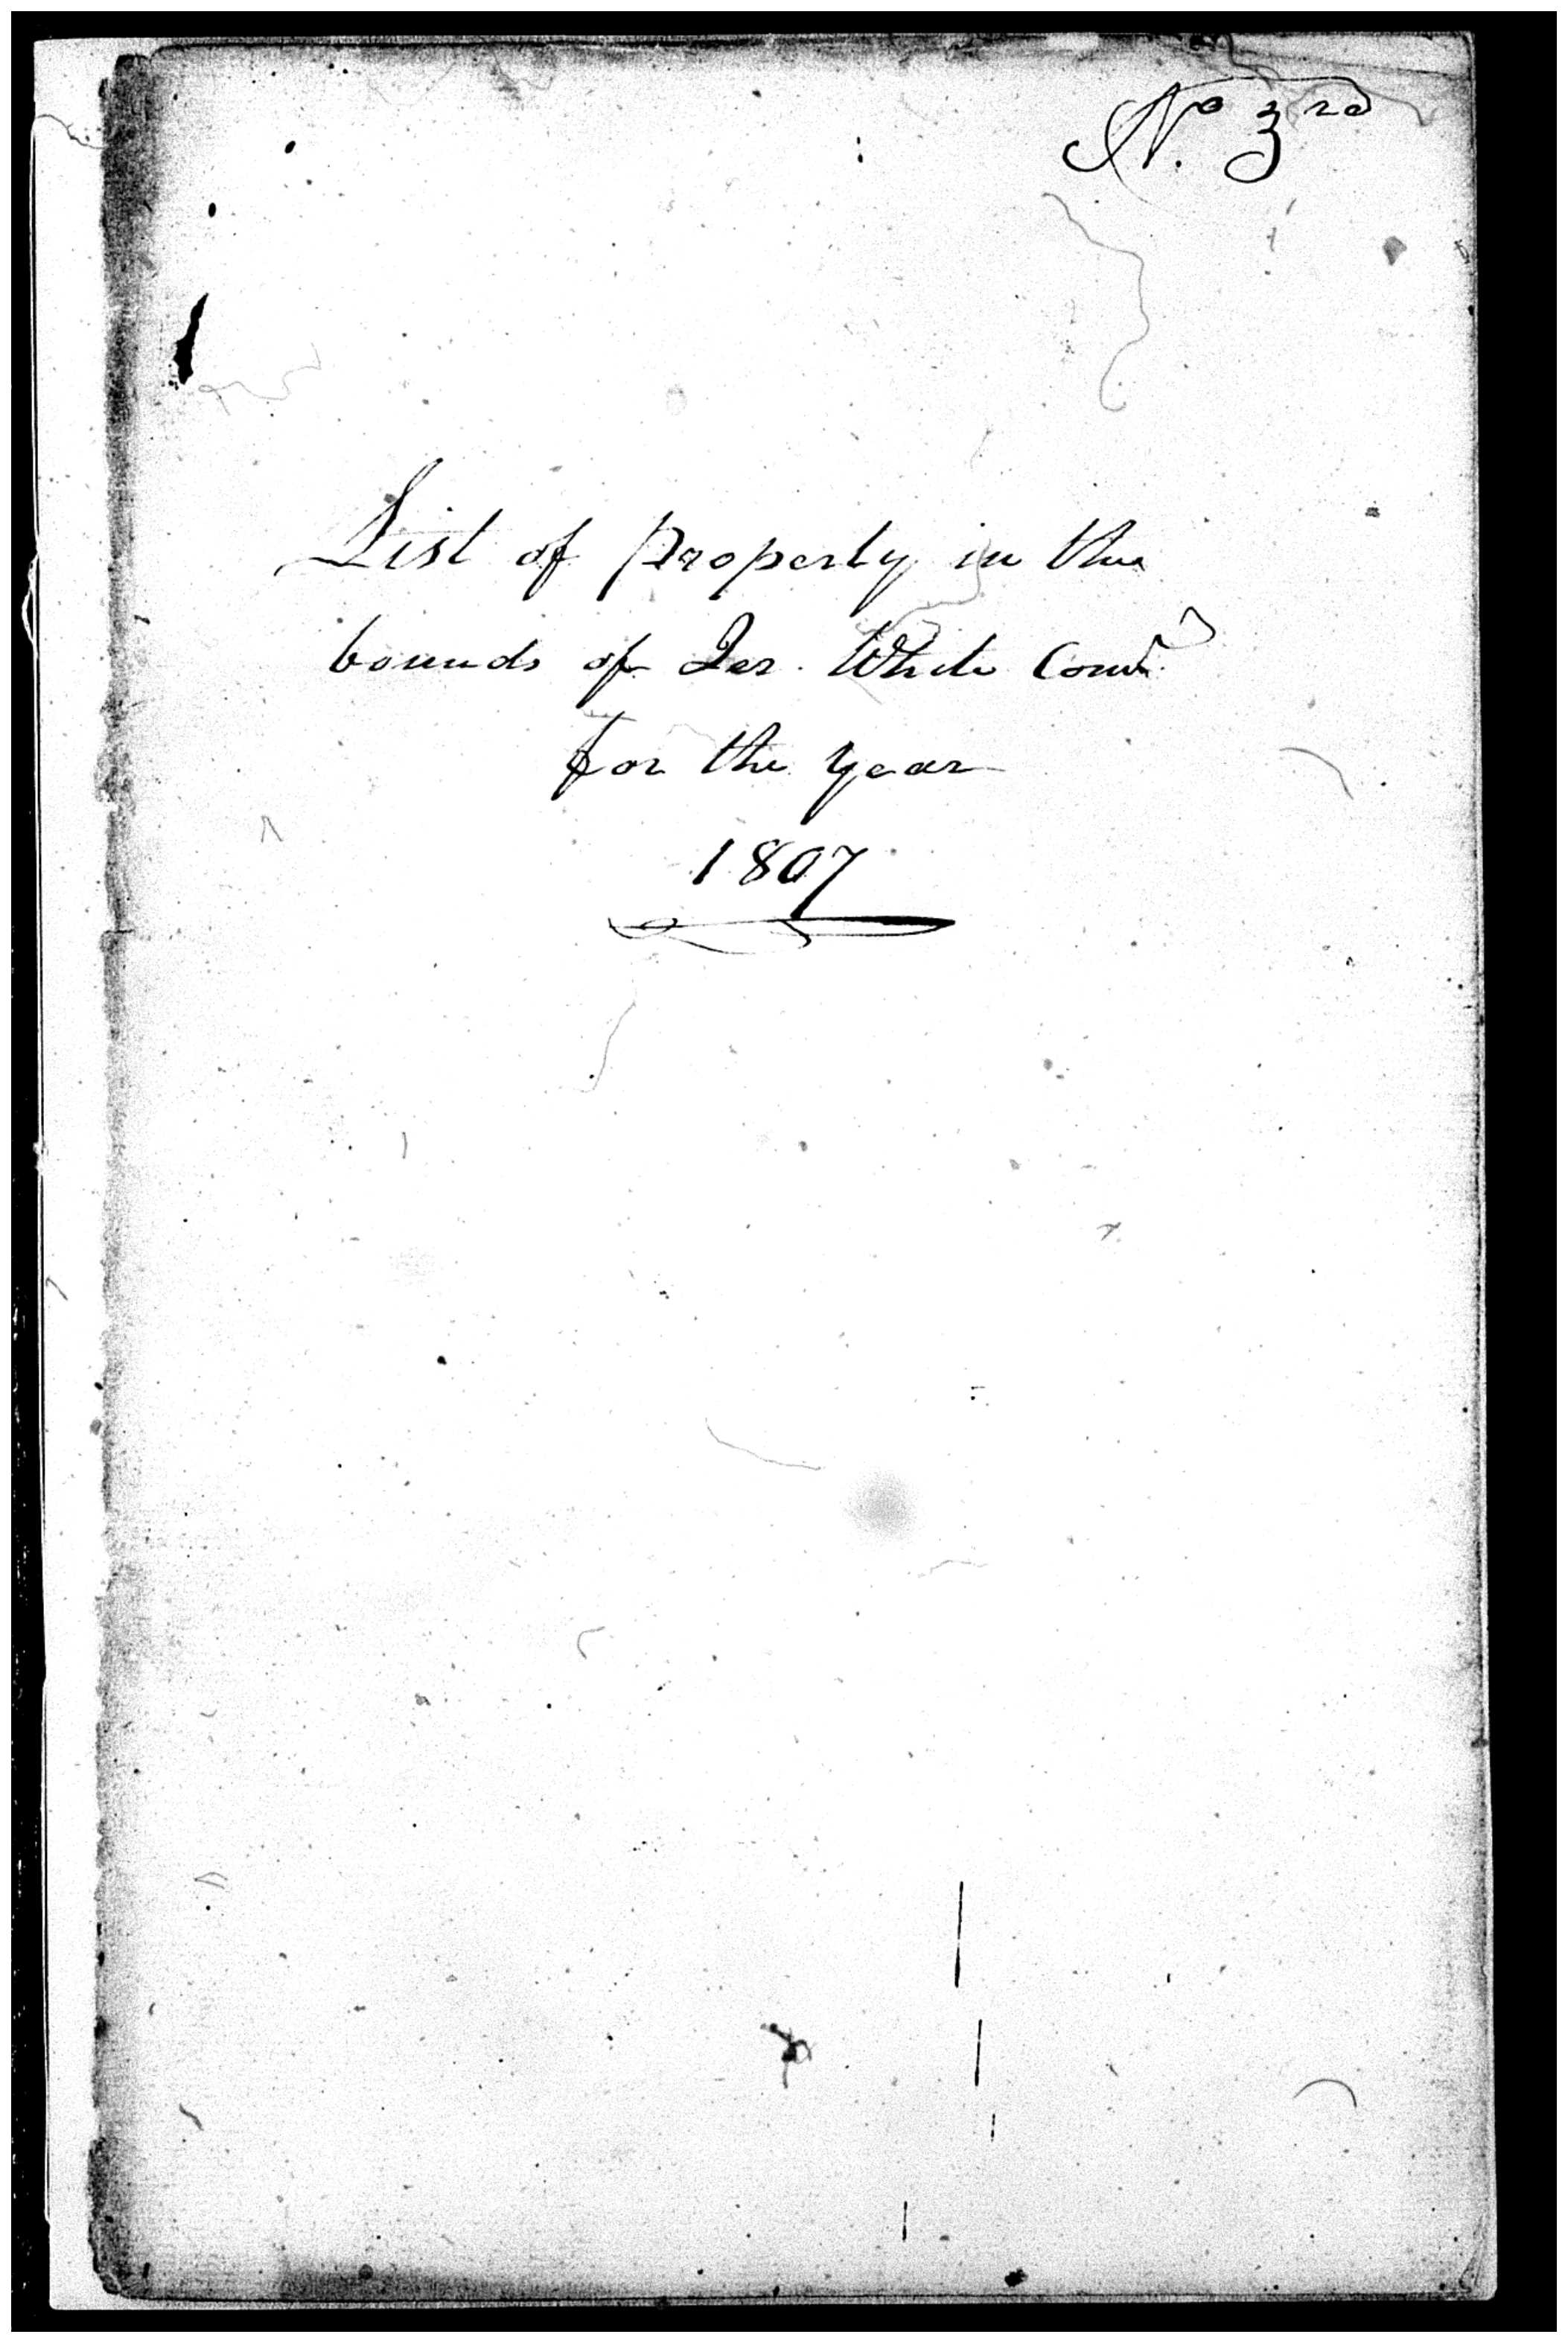 No. 3rd
List of property in the
bounds of White Comr
for the year
1807